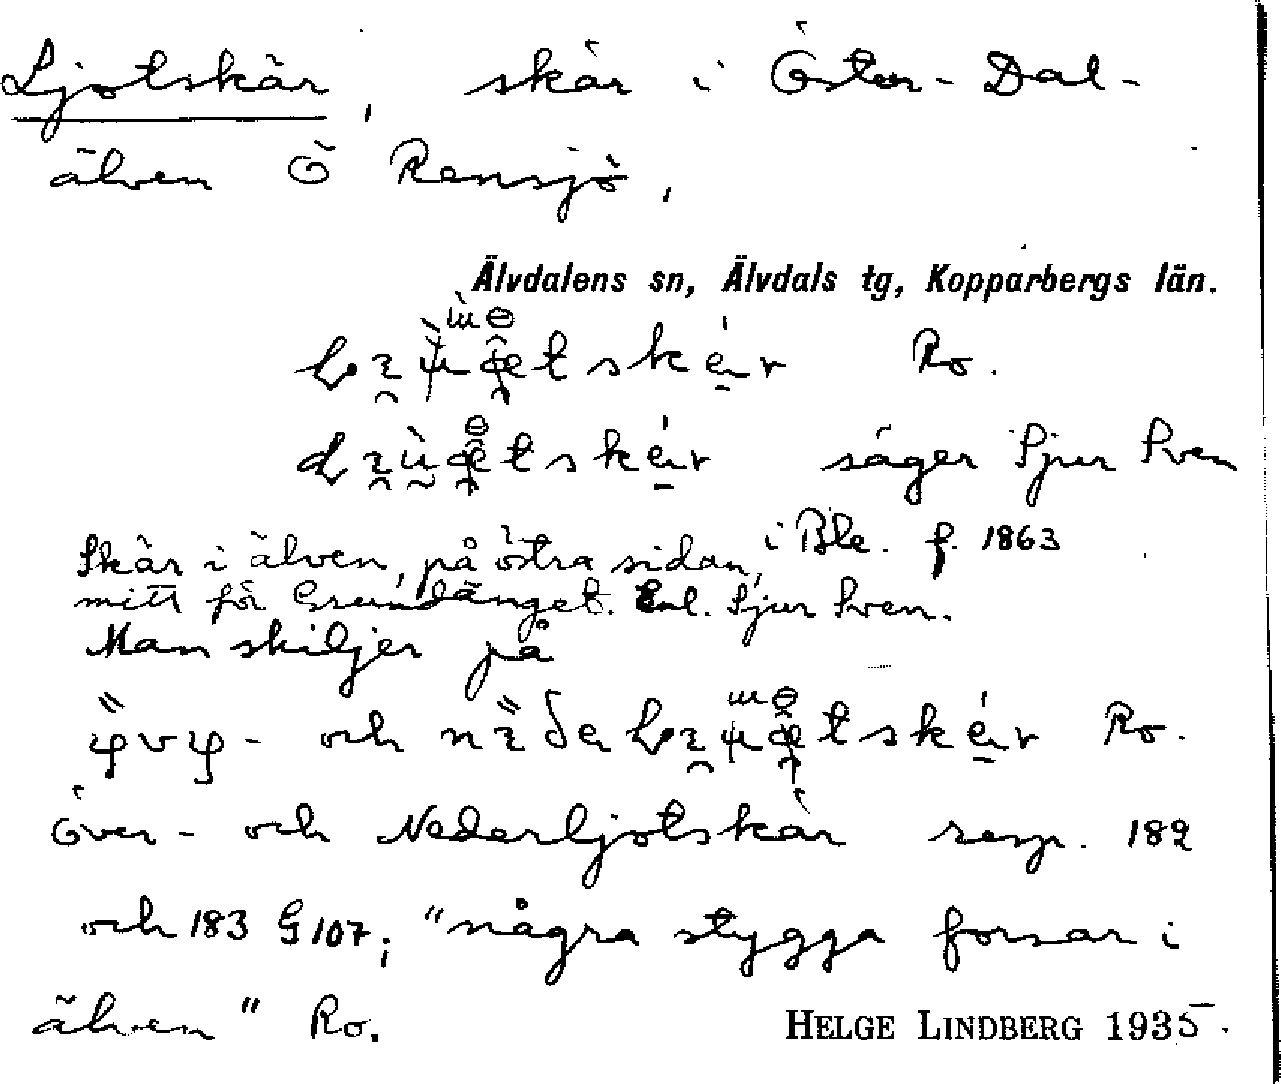 Ljotskär, skär i Öster-Dal-
älven Ö Rensjö,
Älvdalens sn, Älvdals tg, Kopparbergs län.
Ro.
säger Sjur Sven
i Ble. f. 1863
Skär i älven, på östra sidan,
mitt för Grundänget. Enl. Sjur Sven.
Man skiljer på
och Ro.
Över- och Nederljotskär resp. 182
och 183 G 107; "några stygga forsar i
älven" Ro.
HELGE LINDBERG 1935.